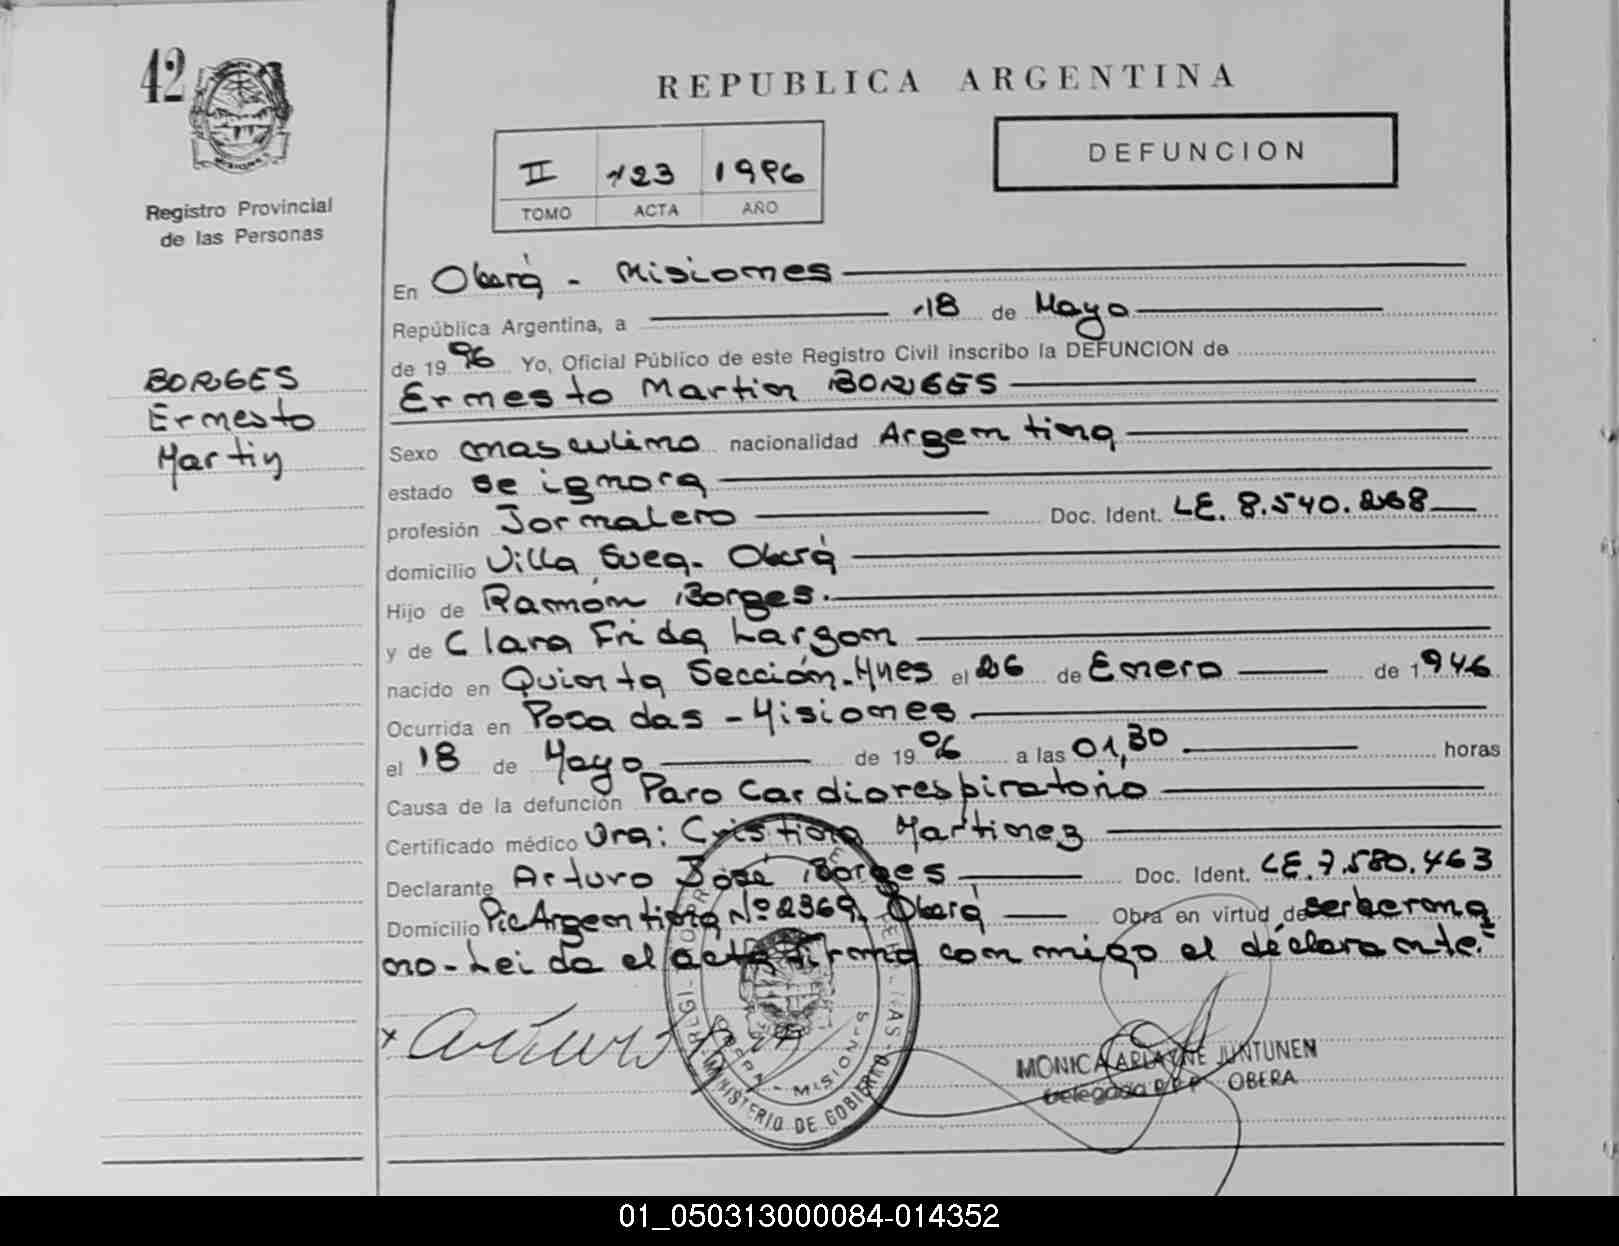 42
MISIONES
Registro Provincial
de las Personas
REPUBLICA ARGENTINA
DEFUNCION
II 123 1996
TOMO ACTA AÑO
BORGES
Ernesto
Martin
En Oberá - Misiones
República Argentina, a 18 de Mayo
de 1996 Yo, Oficial Público de este Registro Civil inscribo la DEFUNCION de
Ernesto Martin BORGES
Sexo masculino nacionalidad Argentina
estado se ignora
profesión Jornalero Doc. Ident. LE. 8.540.268
domicilio Villa Svea. Oberá
Hijo de Ramón Borges.
y de Clara Frida Largon
nacido en Quinta Sección-Mnes el 26 de Enero de 1946
Ocurrida en Posadas - Misiones
el 18 de Mayo de 1996 a las 01,30 horas
Causa de la defunción Paro Cardiorespiratorio
Certificado médico Dra: Cristina Martinez
Declarante Arturo José Borges Doc. Ident. LE. 7.580.463
Domicilio Pje Argentina Nº 2369, Oberá Obra en virtud de ser hermano
no - Leida el acta firma conmigo el declarante.
x Arturo
MINISTERIO DE GOBIERNO
OBERA - MISIONES
MONICA ARLAINE JUNTUNEN
Delegada R.P.P. OBERA
01_050313000084-014352